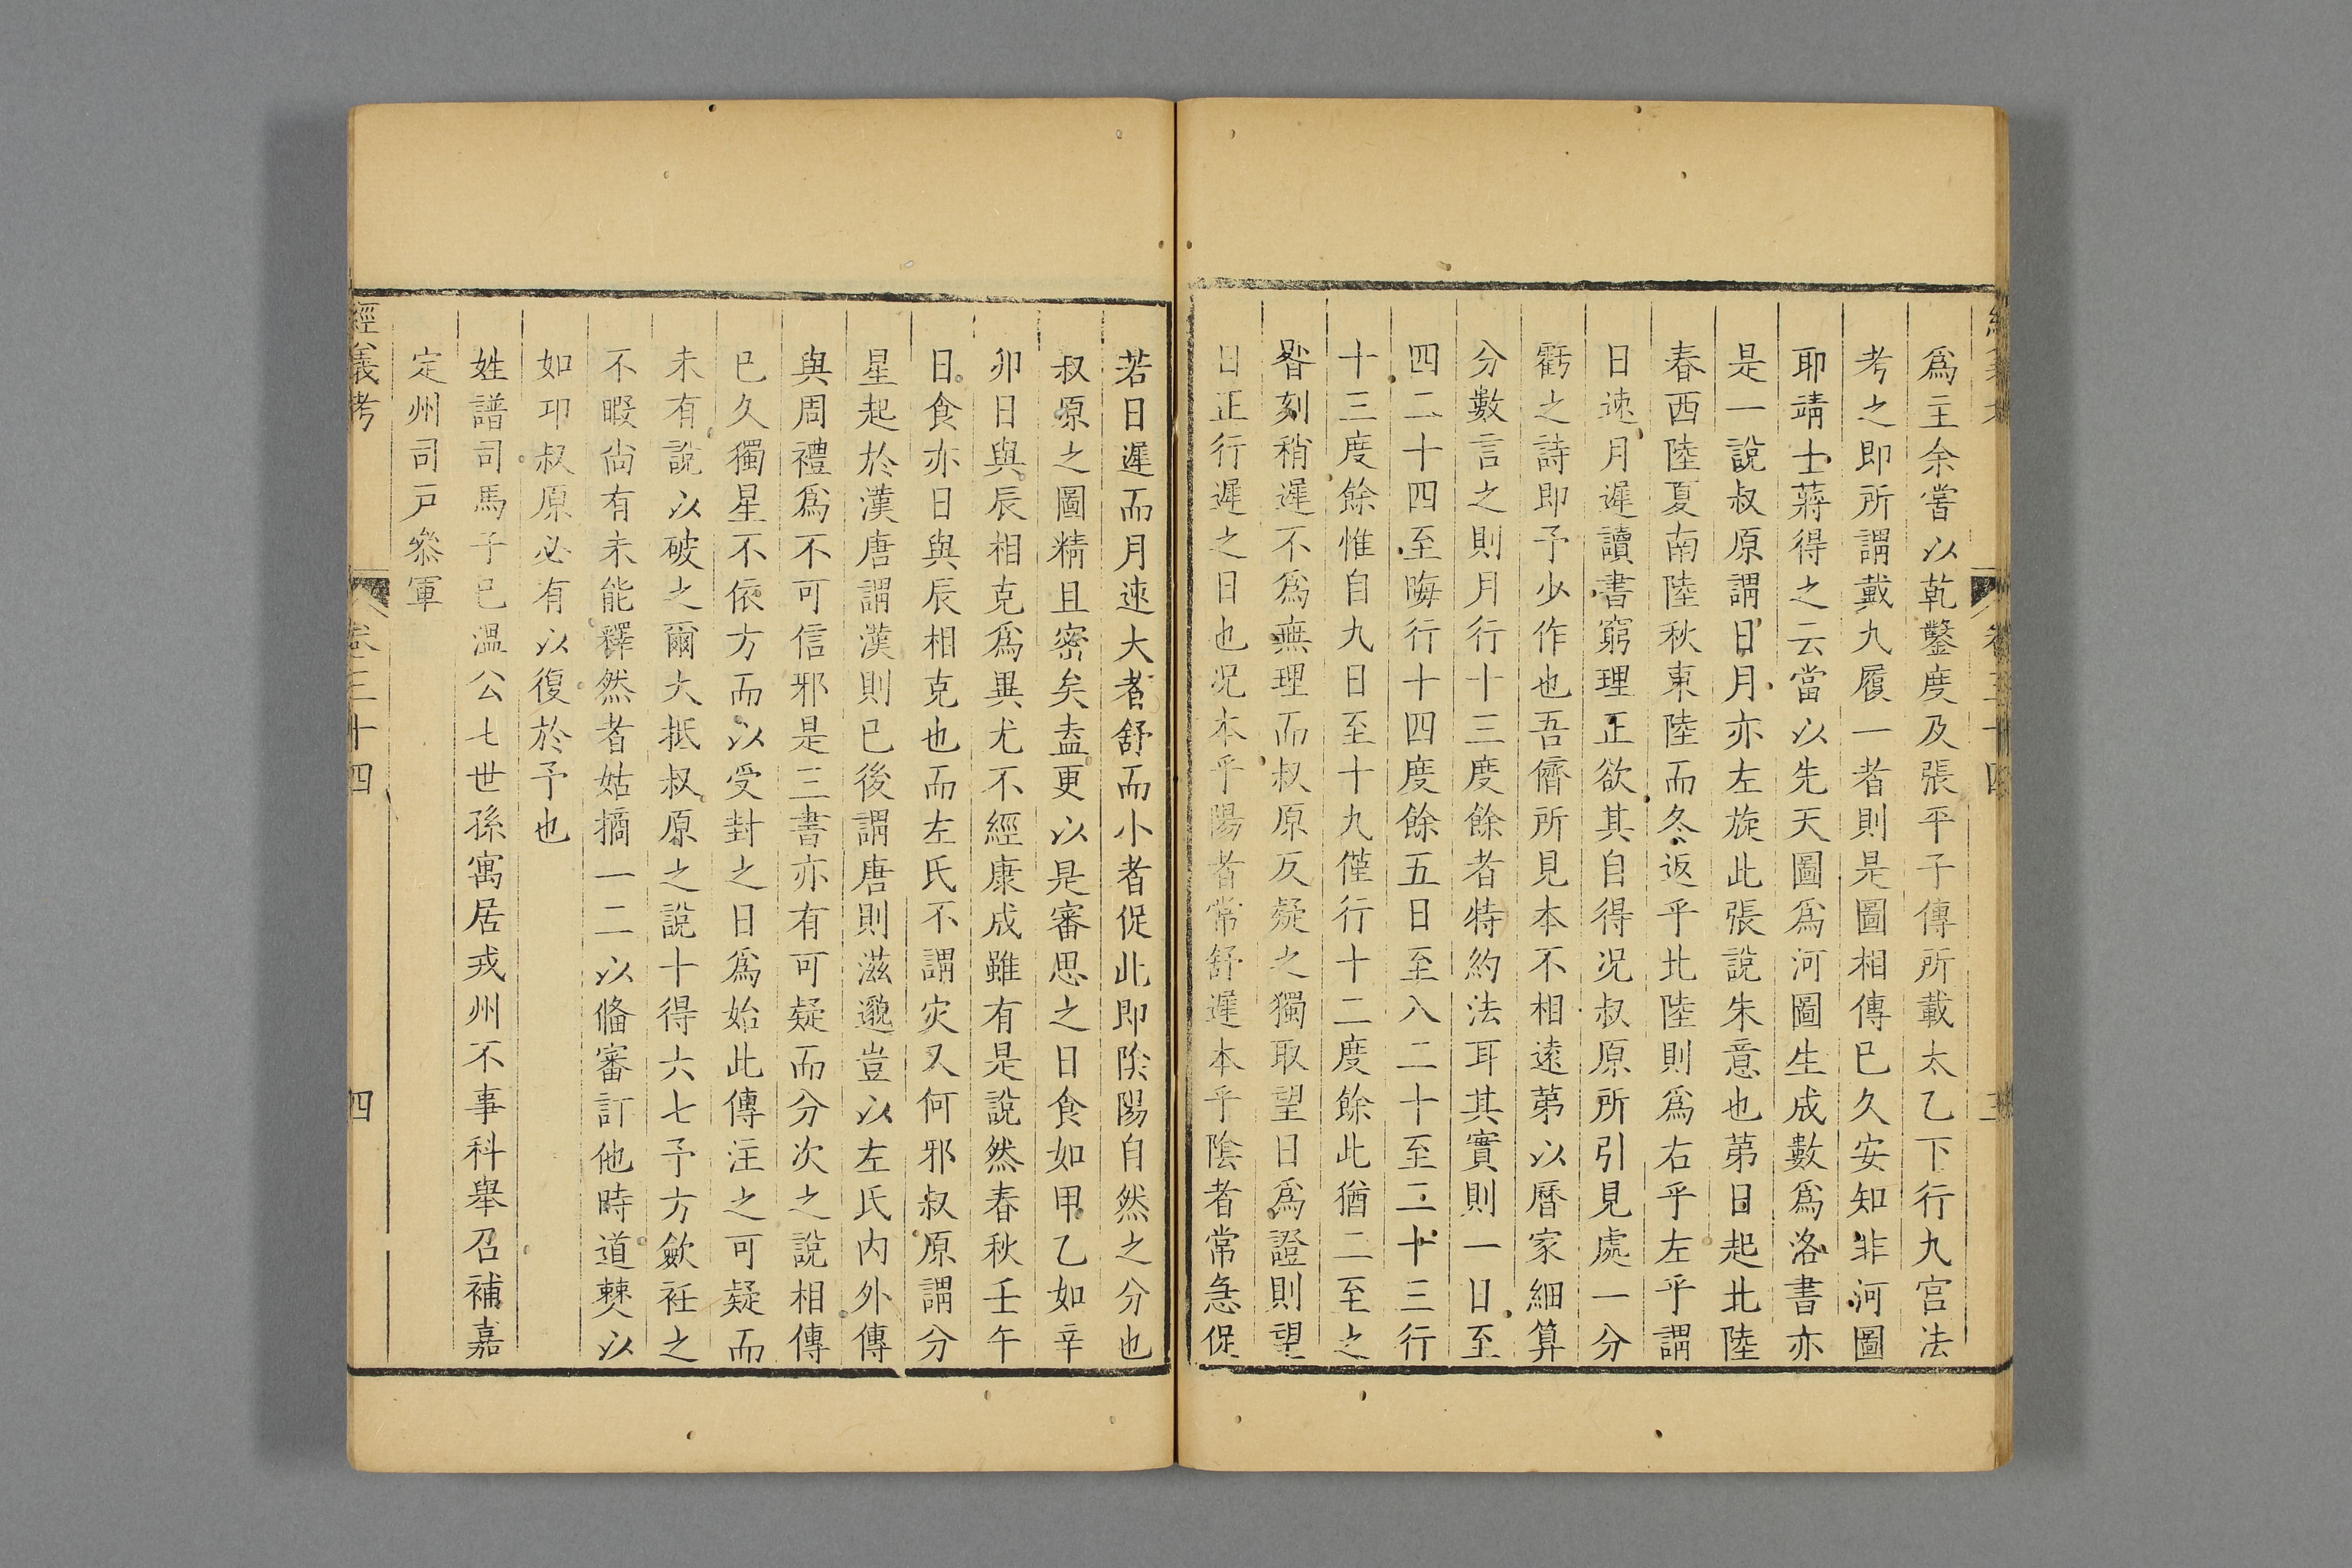 爲主余嘗以乾鑿度及張平子傳所載太乙下行九宮法
考之即所謂戴九履一者則是圖相傳已久安知非河圖
耶靖士蔣得之云當以先天圖爲河圖生成數爲洛書亦
是一說叔原謂日月亦左旋此張說朱意也第日起北陸
春西陸夏南陸秋東陸而冬返乎北陸則爲右乎左乎謂
日速月遲讀書窮理正欲其自得况叔原所引見處一分
虧之詩即予少作也吾儕所見本不相遠第以曆家細算
分數言之則月行十三度餘者特約法耳其實則一日至
四二十四至晦行十四度餘五日至八二十至二十三行
十三度餘惟自九日至十九僅行十二度餘此猶二至之
晷刻稍遲不爲無理而叔原反疑之獨取望日爲證則望
日正行遲之日也况本乎陽者常舒遲本乎陰者常急促
若日遲而月速大者舒而小者促此即陰陽自然之分也
叔原之圖精且密矣盍更以是審思之日食如甲乙如辛
卯日與辰相克爲異尤不經康成雖有是說然春秋壬午
日食亦日與辰相克也而左氏不謂灾又何邪叔原謂分
星起於漢唐謂漢則已後謂唐則滋邈豈以左氏内外傳
與周禮爲不可信邪是三書亦有可疑而分次之說相傳
已久獨星不依方而以受封之日爲始此傳注之可疑而
未有說以破之爾大抵叔原之說十得六七予方歛衽之
不暇尚有未能釋然者姑摘一二以俻審訂他時道僰以
如卭叔原必有以復於予也
姓譜司馬子已溫公七世孫寓居戎州不事科舉召補嘉
定州司戸叅軍
經義考 卷三十四 四